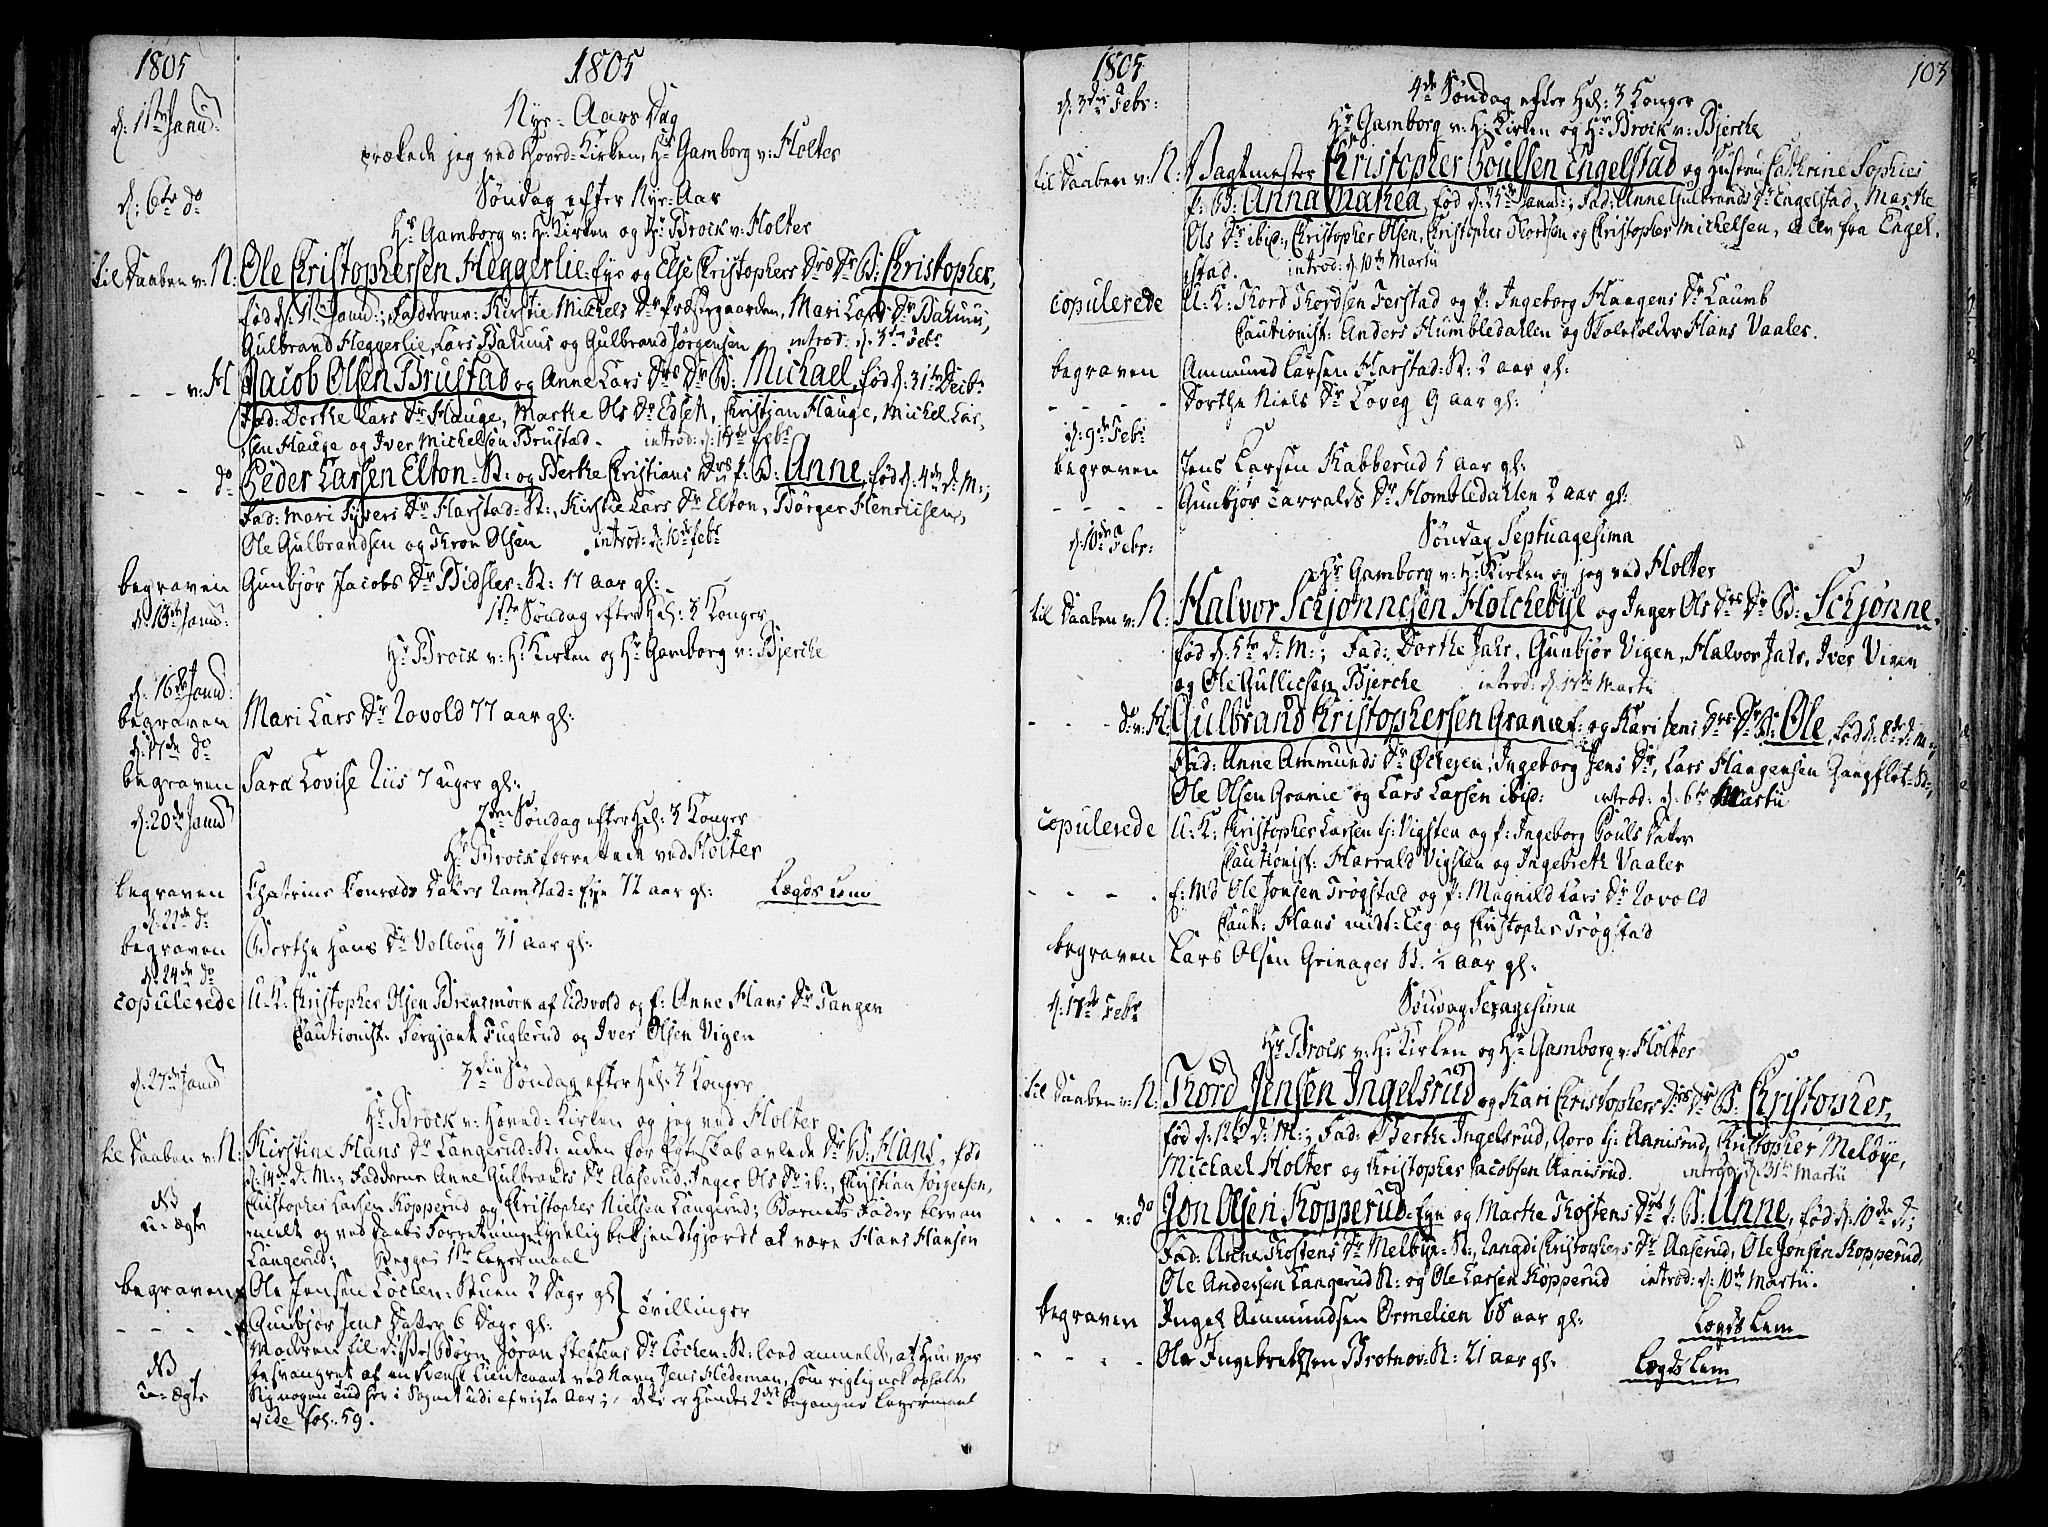 1805
1805
d: 1ste Janu:
Nye-Aars Dag
prækede jeg ved Hovd-Kirken, Hr Gamborg v: Holter
d: 6te do
Søndag efter Nye-Aar
Hr Gamborg v: H: Kirken og Hr Brock v: Holter
til Daaben v: N: Ole Christophersen Heggerlie-Eye og Else Christophers Drs Dr B: Christopher,
fød d: 1ste Janu:; Fadderne: Kirstie Michels Dr Præstegaarden, Mari Lars Dr Bakuus,
Gulbrand Heggerlie, Lars Bakuus og Gulbrand Jørgensen introd: d: 3die Febr
- - - v: H Jacob Olsen Brustad og Anne Lars Drs Dr B: Michael, fød d: 31te Decbr
Fad: Dorthe Lars Dr Hauge, Marthe Ols Dr Edsen, Christian Hauge, Michel Lar-
sen Hauge og Iver Michelsen Brustad. introd: d: Febr
- - - do Peder Larsen Elton-St: og Berthe Christians Drs f: B: Anne, fød d: 4de d: M:,
Fad: Mari Syvers Dr Harstad-St:, Kirstie Lars Dr Elton, Børger Henricsen,
Ole Gulbrandsen og Thron Olsen introd: d: 10de Febr
begraven Gunbjør Jacobs Dr Bidsler-St: 17 aar gl:
d: 13de Janu:
1ste Søndag efter Hel: 3 Konger
Hr Brock v: H: Kirken og Hr Gamborg v: Bjerche
d: 16de Janu:
begraven Mari Lars Dr Rovold 77 aar gl:
d: 17de do
begraven Sara Lovise Riis 7 uger gl:
d: 20de Janu
2den Søndag efter Hel: 3 Konger
Hr Brock forrettede ved Holter
begraven Chatrine Conrads Datter Ramstad-Eye 72 aar gl: Lægds Lem
d: 22de do
begraven Berthe Hans Dr Volloug 31 aar gl:
d: 24de do
copulerede U: K: Christopher Olsen Brensmork af Eidsvold og f: Anne Hans Dr Tangen
Cautionist: Sergjant Fuglerud og Iver Olsen Vigen
d: 27de Janu
3die Søndag efter Hel: 3 Konger
Hr Brock v: Hoved-Kirken og jeg ved Holter
til Daaben v: N: Kirstine Hans Dr Langerud-St: uden for Egteskab avlede Dr B: Hans, fød
d: 14de d: M:; Fadderne Anne Gulbrands Dr Aaserud, Inger Ols Dr ib:, Christian Jørgensen,
NB Christopher Larsen Kopperud og Christopher Nielsen Langerud; Barnets Fader blev an-
u-ægte melt og ved Forretning lydelig bekjendtgjordt at være Hans Hansen
Langerud; Begges 1ste Leyermaal
begraven Ole Jensen Løcken-Stuen 2 Dage gl: } Tvillinger
- - - - Gunbjør Jens Datter 6 Dage gl:
Modren til disse Børn Jøran Steffens Dr Løcken-St: lod anmelde, at Hun var
NB besvangret af en Svensk Lieutenant ved Navn Jens Hedeman, som rigtignok opholt
u-ægte sig nogen tid her i Sognet udi afvigte Aar; dette er Hendes 2det begangne Leyermaal
vide fol: 59.
1805
103
d: 3die Febr:
4de Søndag efter Hel: 3 Konger
Hr Gamborg v: H: Kirken og Hr Brock v: Bjerche
til Daaben v: N: Vagtmester Christopher Poulsen Engelstad og Hustru Cathrine Sophies
f: B: Anna Marea, fød d: 25de Janu:; Fad: Anne Gulbrands Dr Engelstad, Marthe
Ols Dr ibid:, Christopher Olsen, Christopher Thordsen og Christopher Michelsen, alle fra Engel-
stad. introd: d: 10de Martii
copulerede U: K: Thord Thordsen Ferstad og P: Ingeborg Haagens Dr Laumb
Cautionist: Anders Humbledahlen og Skoleholder Hans Vaaler.
begraven Ammund Larsen Harstad-St: 2 aar gl:
- - - - Dorthe Niels Dr Loveg 9 aar gl:
d: 9de Febr
begraven Jens Larsen Kabberud 5 aar gl:
- - - - Gunbjør Tarralds Dr Hombledahlen 2 aar gl:
d: 10de Febr:
Søndag Septuagesima
Hr Gamborg v: H: Kirken og jeg ved Holter
til Daaben v: N: Halvor Schjønnesen Holchebye og Inger Ols Drs Dr B: Schjønne,
fød d: 5te d: M:; Fad: Dorthe Jahr, Gunbjør Vigen, Halvor Jahr, Iver Vigen
og Ole Gullicsen Bjerche introd: d: 17de Martii
- - - do v: H: Gulbrand Christophersen Granie f: og Kari Jens Drs Dr B: Ole, fød d: 8de d: M:,
Fad: Anne Ammunds Dr Øchern, Ingeborg Jens Dr, Lars Haagensen Gangflot-St:,
Ole Olsen Granie og Lars Larsen ibid: introd: d: 6te Martii
copulerede U: K: Christopher Larsen Vigsten og P: Ingeborg Pouls Datter
Cautionist: Harrald Vigsten og Ingebreth Vaaler
- - - . E: Md Ole Jonsen Trøgstad og P: Magnild Lars Dr Rovold
Caut: Hans midt-Eeg og Christopher Trøgstad
begraven Lars Olsen Grinager St. ½ aar gl:
d: 17de Febr
Søndag Sexagesima
Hr Brock v: H: Kirken og Hr Gamborg v: Holter
til Daaben v: N: Thord Jensen Ingelsrud og Kari Christophers Drs Dr B: Christopher,
fød d: 12te d: M:; Fad: Berthe Ingelsrud, Goro Aanisrud, Christopher Meløye,
Michael Holter og Christopher Jacobsen Aanisrud. introd: d: 31te Martii
- - - - v: do Jon Olsen Kopperud-Eye og Marthe Thostens Drs f: B: Anne, fød d: 10de d:;
Fad: Anne Thostens Dr Melbye-St:, Rangdi Christophers Dr Aaserud, Ole Jonsen Kopperud,
Ole Andersen Langerud St: og Ole Larsen Kopperud introd: d: 10de Martii.
begraven Ingel Ammundsen Ormelien 68 aar gl: Lægds Lem
- - - - Ole Ingebrethsen Brotnov-St: 21 aar gl: Lægds Lem